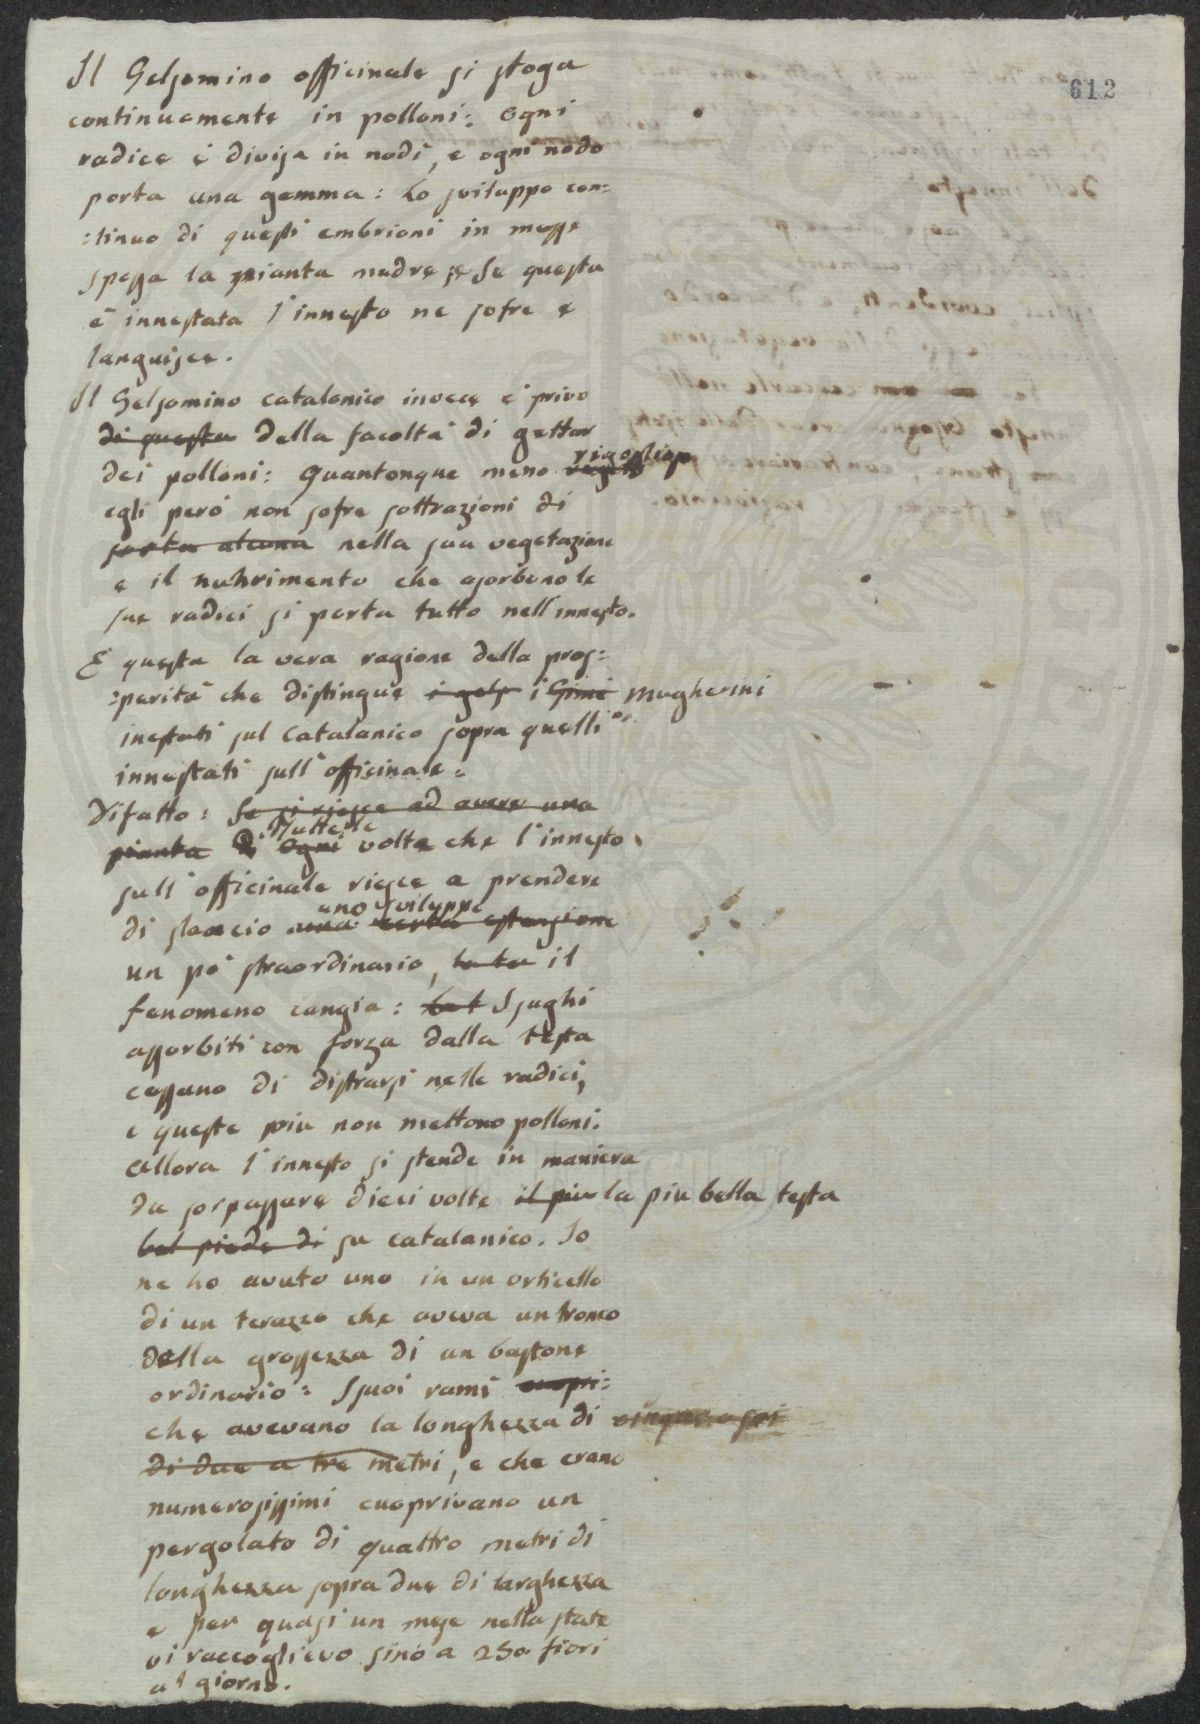 612
Il Gelsomino officinale si sfoga
continuamente in polloni: Ogni
radice è divisa in nodi, e ogni nodo
porta una gemma: Lo sviluppo con=
=tinuo di questi embrioni in messe
spossa la pianta madre e se questa
è innestata l'innesto ne sofre e
languisce.
Il Gelsomino catalonico invece è privo
di questa della facoltà di gettar
dei polloni: Quantonque meno rigoglioso
egli però non sofre sottrazioni di
sorta alcuna nella sua vegetazione
e il nuhrimento che asorbono le
sue radici si porta tutto nell'innesto.
È questa la vera ragione della pros=
=perità che distingue i gels i Gimè mugherini
inestati sul Catalanico sopra quelli
innestati sull'officinale.
Difatto: Se si riesce ad avere una
pianta di ogni Tutte le volte che l'innesto
sull'officinale riesce a prendere
di slancio una certa estensione uno sviluppo
un pò straordinario, la ta il
fenomeno cangia: I sughi
assorbiti con forza dalla testa
cessano di distrarsi nelle radici,
e queste piu non mettono polloni.
Allora l'innesto si stende in maniera
da sorpassare dieci volte il piu la piu bella testa
bel piede di su catalanico. Io
ne ho avuto uno in un orticello
di un terazzo che aveva un tronco
della grossezza di un bastone
ordinario: I suoi rami cuopri=
che avevano la longhezza di cinque a sei
di due a tre metri, e che erano
numerosissimi cuoprivano un
pergolato di quattro metri di
longhezza sopra due di larghezza
e per quasi un mese nella state
vi raccoglievo sino a 250 fiori
al giorno.